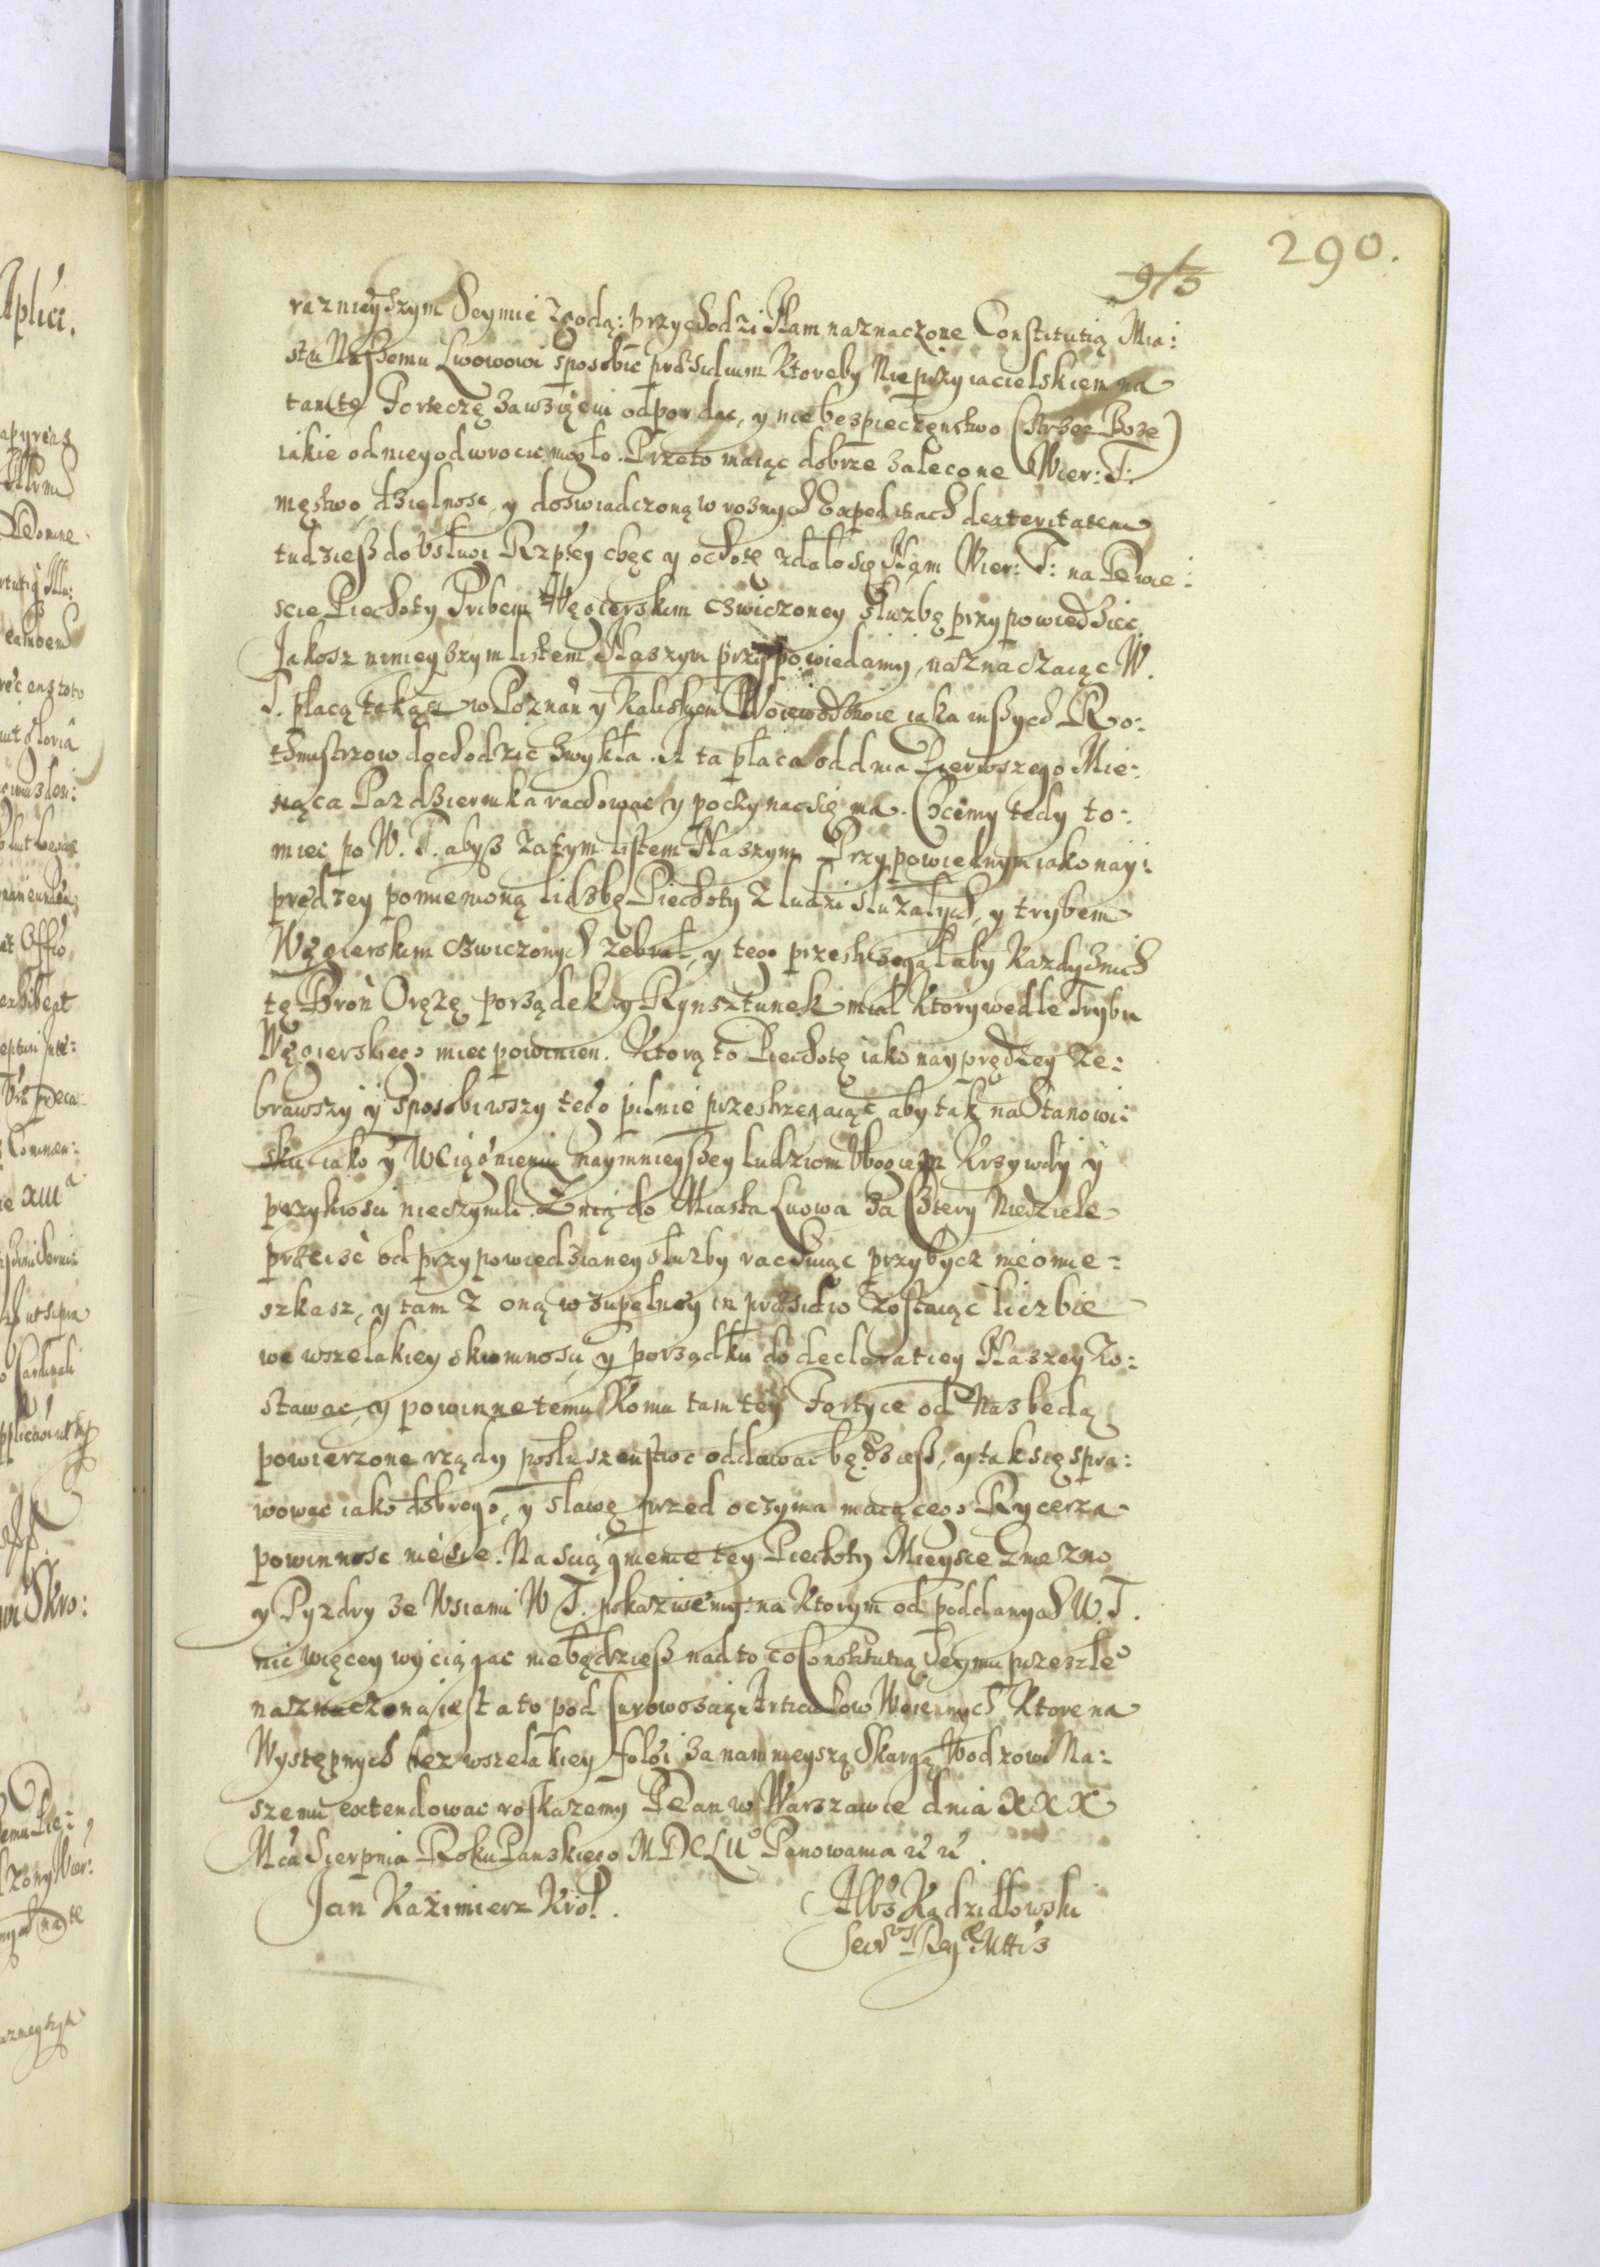 290.
913
raznieyszym Seymie zgodą: przychodzi Nam naznaczone Constitutią Mia:
stu Naszemu Lwowowi sposobic præsidium Ktoreby Nieprzyiacielskiem na
tamtę Fortecę zawzięciu odpor dac, y niebespieczenstwo (strzez Boze)
iakie od niey odwrocic mogło. Przeto maiąc dobrze zalecone Wier: T:
męstwo, dzielnosc, y doswiadczoną w roznych Expeditiach dexteritatem
tudziesz do Usługi Rzpltey chęc y ochotę zdało się Nam Wier: T: na Dwie:
scie Piechoty Tribem Węgierskim czwiczoney służbę przypowiedziec
Jakosz ninieyszym listem Naszym przypowiedamy, naznaczaiąc W.
T. płacą takąz w Poznan y Kaliskiem Woiewodztwie iaka inszych Ro:
thmistrzow dochodzic zwykła. A ta płaca od dnia Pierwszego Mie:
siąca Pazdziernika rachowac y poczynac się ma. Chcemy tedy to
miec po W. T. abysz za tym listem Naszym Przypowiednym iako nay:
prędzey pomienioną liczbę Piechoty z ludzi służałych, y trybem
Węgierskim czwiczonych zebrał, y tego przestrzegał aby Kazdy z nich
tę Bron Oręzę porządek y Rynsztunek miał Ktory wedle Trybu
Węgierskiego miec powinien. Ktorą to Piechotę iako nayprędzey ze:
brawszy y sposobiwszy tego pilnie przestrzegaiąc aby tak na Stanowi:
sku iako y W Ciągnieniu naymnieyszey ludziom Ubogiem Krzywdy y
przykrosci nieczynili. Z nią do Miasta Lwowa za Cztery Niedziele
przeisc od przypowiedzianey służby rachuiąc przybyc nieomie:
szkasz, y tam z oną w zupełney in præsidio zostaiąc liczbie
we wszelakiey skromnosci y porządku do declaratiey Naszey zo:
stawac, y powinne temu Komu tam tey Fortyce od Nas będą
powierzone rządy posłuszenstwo oddawac będziesz, y tak się spra:
wowac iako dobrego, y sławę przed oczyma maiącego Rycerza
powinnosc niesie. Na sciągnienie tey Piechoty Mieysce Gnezno
y Pyzdry ze Wsiami W T. pokazuiemy: na Ktorym od poddanych W. T.
nic więcey wyciągac niebędziesz nad to co Constitutią Seymu przeszłe
naznaczona iest a to pod surowoscią Articułow Woiennych Ktore na
Występnych bez wszelakiey folgi za namnieyszą Skargą Wodzowi Na:
szemu extendowac roskazemy Dan w Warszawie dnia XXX
Mca Sierpnia Roku Panskiego MDCLII Panowania u u.
Jan Kazimierz Krol.
Albs Kądzidłowski
Secrs Regæ Mttis